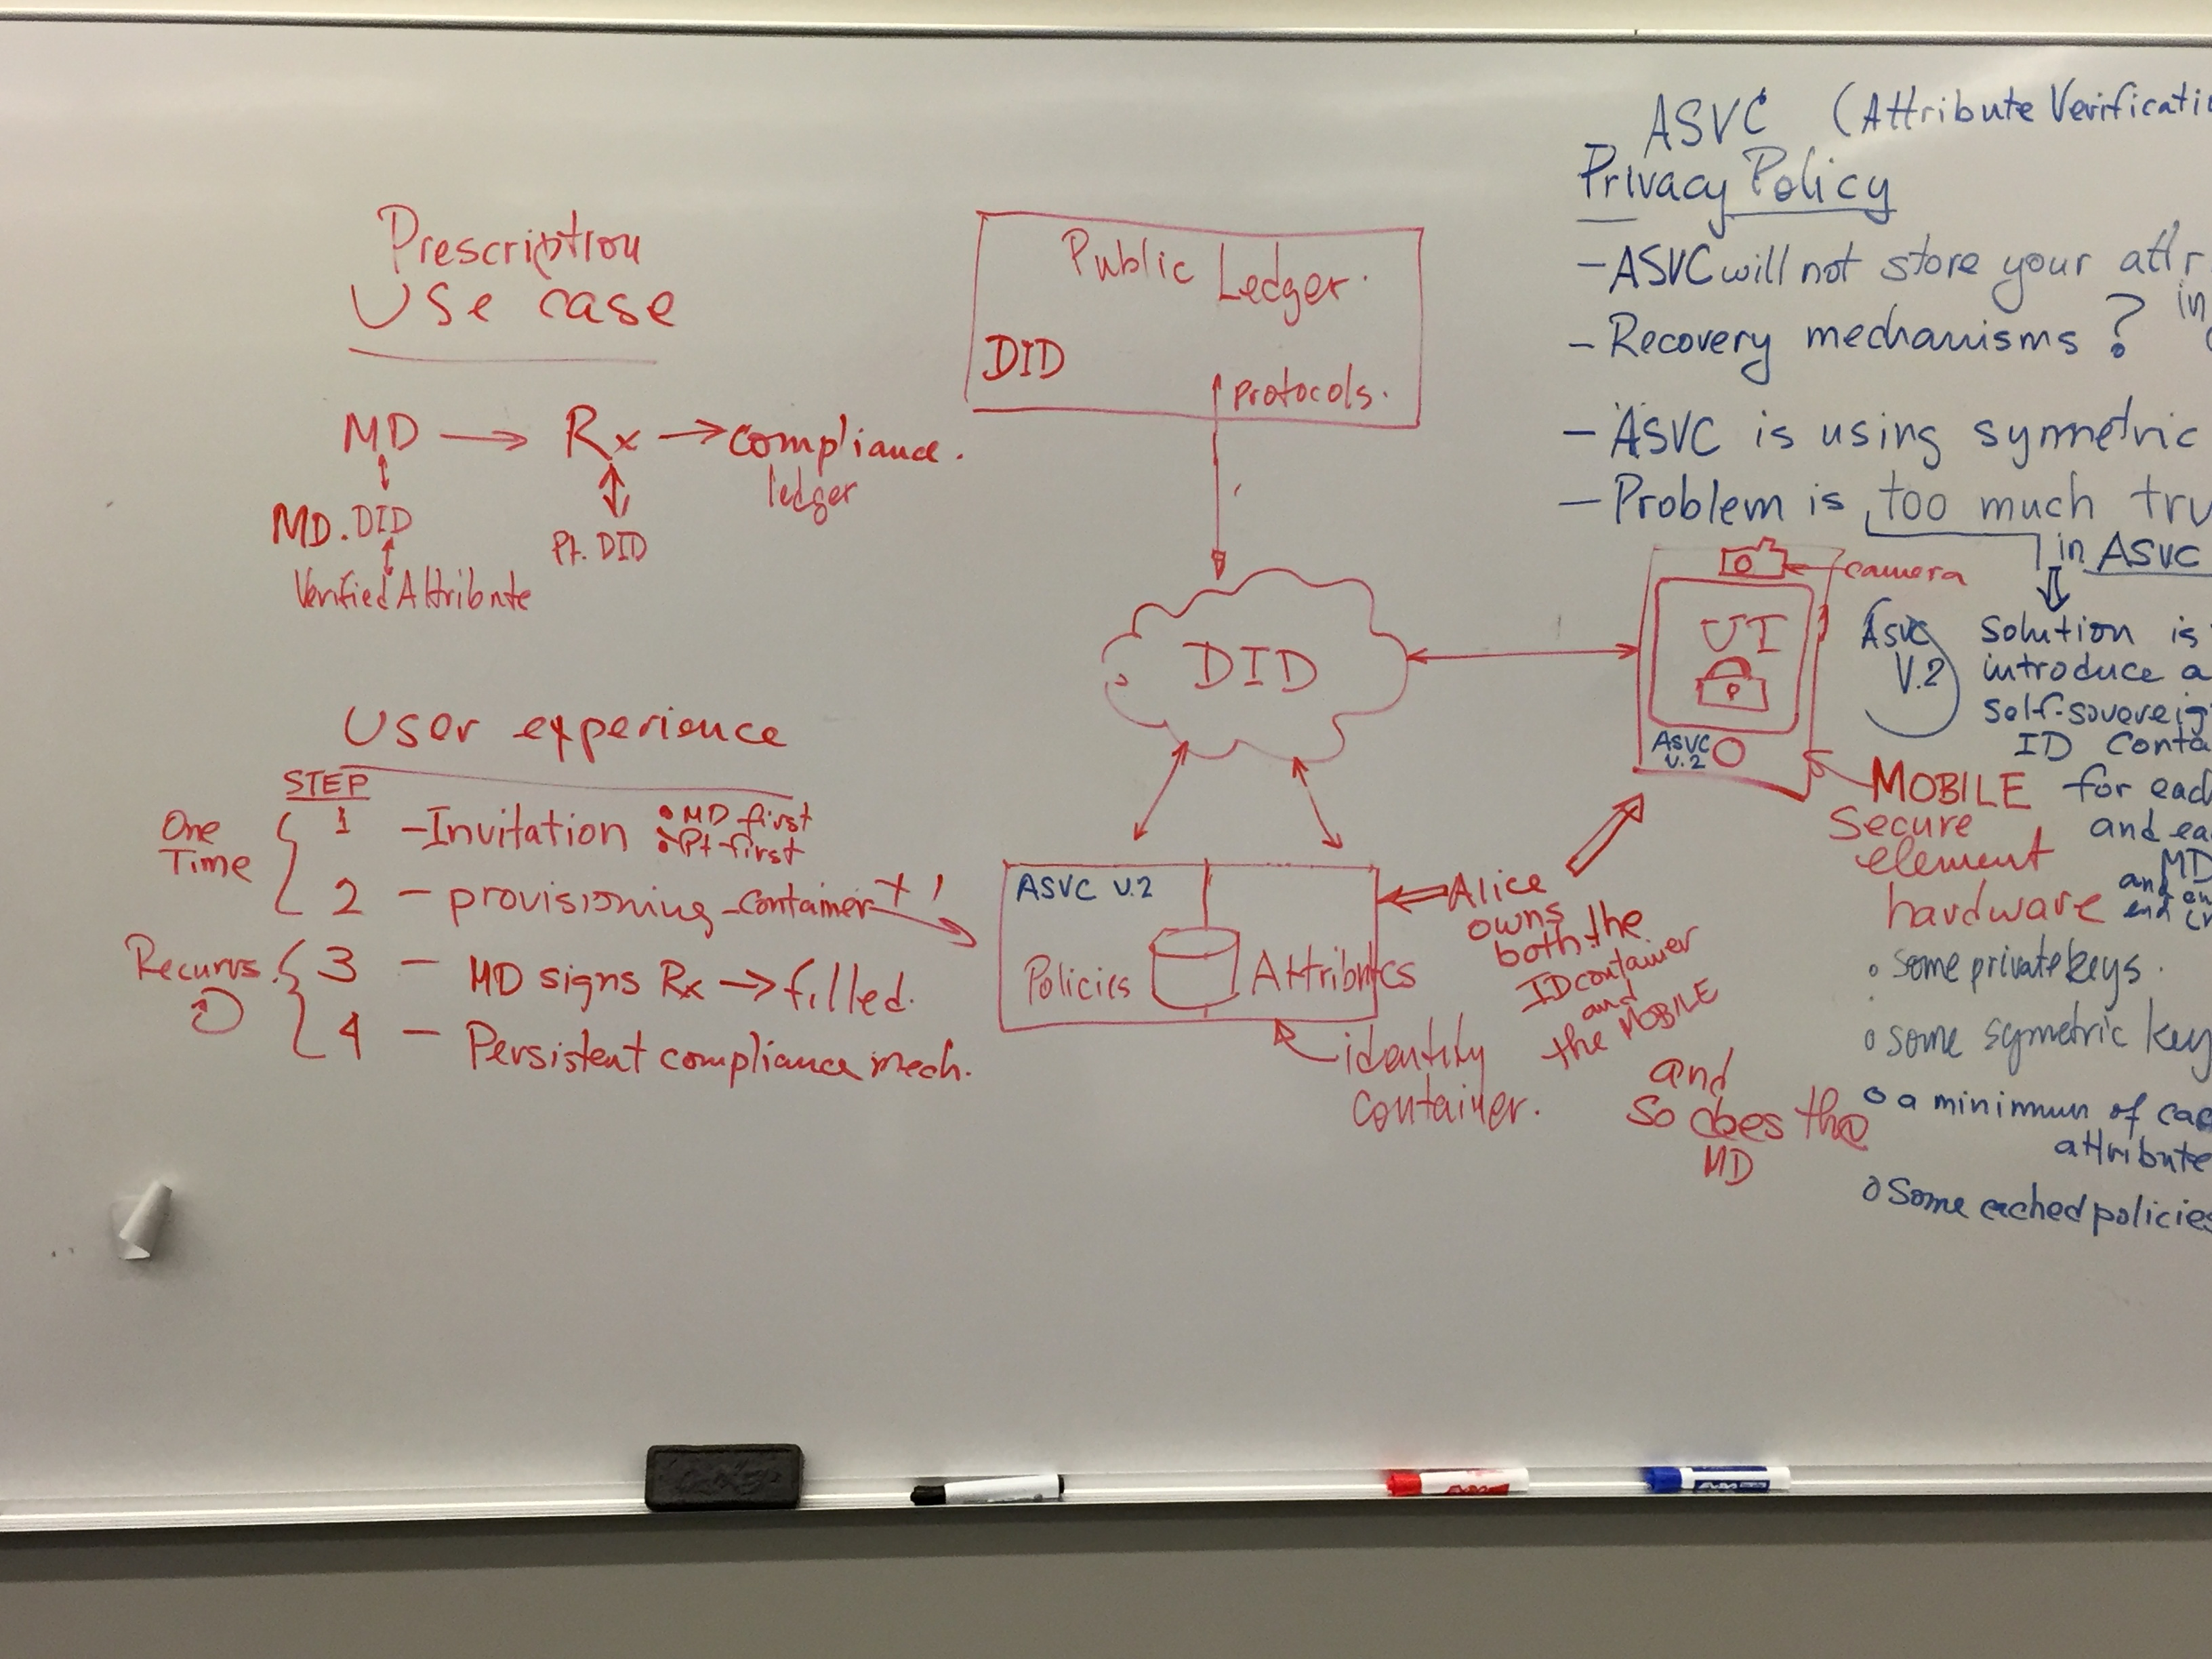 Prescription
Use case
MD → Rx → compliance.
ledger
MD.DID
Pt. DID
Verified Attribute
User experience
STEP
One
Time
1 - Invitation
• MD first
• Pt first
2 - provisioning - container
Recurrs.
3 - MD signs Rx → filled.
4 - Persistent compliance mech.
Public Ledger.
DID
protocols.
DID
ASVC V.2
Policies
Attributes
identity
container.
Alice
owns
both the
ID container
and
the MOBILE
and
so does the
MD
camera
UI
ASVC
V.2
MOBILE
Secure
element
hardware
ASVC (Attribute Verificati
Privacy Policy
- ASVC will not store your attr
in
- Recovery mechanisms ?
- ASVC is using symmetric
- Problem is too much tru
in ASVC
ASVC
V.2
Solution is
introduce a
self-sovereig
ID Conta
for each
and ea
MD
and
end
o some private keys.
o some symetric key
o a minimum of cac
attribute
o Some cached policies